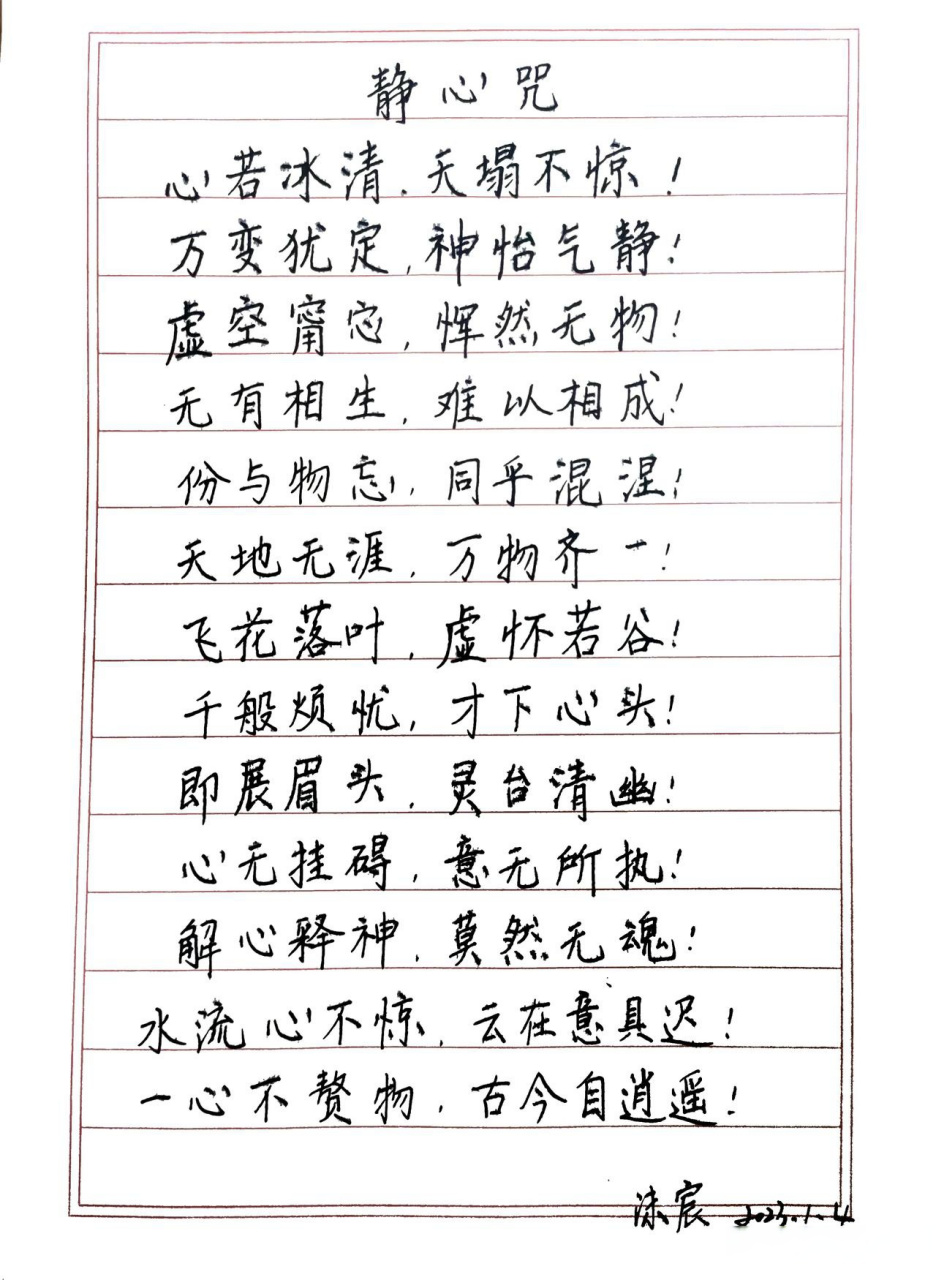 静心咒
心若冰清，天塌不惊！
万变犹定，神怡气静！
虚空甯宓，恽然无物！
无有相生，难以相成！
份与物忘，同乎混涅！
天地无涯，万物齐一！
飞花落叶，虚怀若谷！
千般烦忧，才下心头！
即展眉头，灵台清幽！
心无挂碍，意无所执！
解心释神，莫然无魂！
水流心不惊，云在意具迟！
一心不赘物，古今自逍遥！
宸 2023.1.4